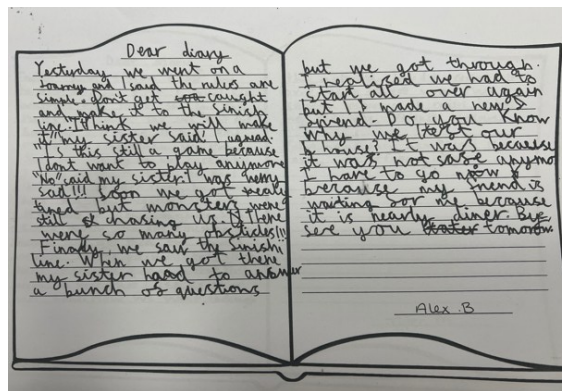 Dear diary
Yesterday we went on a
Journey and I said the rules are
simple. Don't get caught
and make it to the finish
line. "I think we will make
it" my sister said. I
"Is this still a game because
I dont want to play anymore
"No" said my sister. I was very
sad!!! Soon we got realy
tired but monsters were
still chasing us. There
were so many obsticles!!!
Finaly, we saw the finish
line. When we got there
my sister had to answer
a bunch of questions
but we got through.
I realised we had to
start all over again
but I made a new
friend. Do you know
why we left our
house? It was because
it was not safe anymo
I have to go now
because my friend is
waiting for me because
it is nearly diner. Bye
see you tomorow.
Alex B